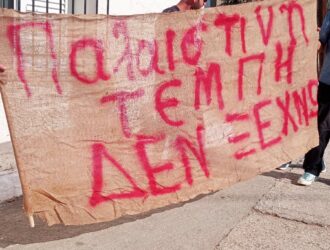 Παλαιστινη
ΤΕΜΠΗ
ΔΕΝ ΞΕΧΝΩ